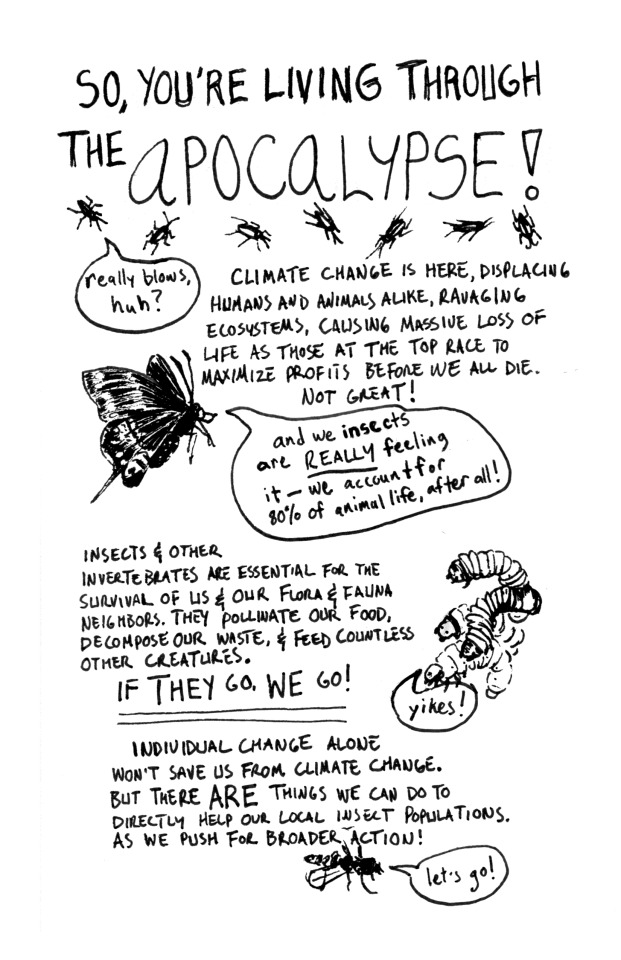 SO, YOU'RE LIVING THROUGH
THE APOCALYPSE!
really blows,
huh?
CLIMATE CHANGE IS HERE, DISPLACING
HUMANS AND ANIMALS ALIKE, RAVAGING
ECOSYSTEMS, CAUSING MASSIVE LOSS OF
LIFE AS THOSE AT THE TOP RACE TO
MAXIMIZE PROFITS BEFORE WE ALL DIE.
NOT GREAT!
and we insects
are REALLY feeling
it - we account for
80% of animal life, after all!
INSECTS & OTHER
INVERTEBRATES ARE ESSENTIAL FOR THE
SURVIVAL OF US & OUR FLORA & FAUNA
NEIGHBORS. THEY POLLINATE OUR FOOD,
DECOMPOSE OUR WASTE, & FEED COUNTLESS
OTHER CREATURES.
IF THEY GO, WE GO!
yikes!
INDIVIDUAL CHANGE ALONE
WON'T SAVE US FROM CLIMATE CHANGE.
BUT THERE ARE THINGS WE CAN DO TO
DIRECTLY HELP OUR LOCAL INSECT POPULATIONS.
AS WE PUSH FOR BROADER ACTION!
let's go!